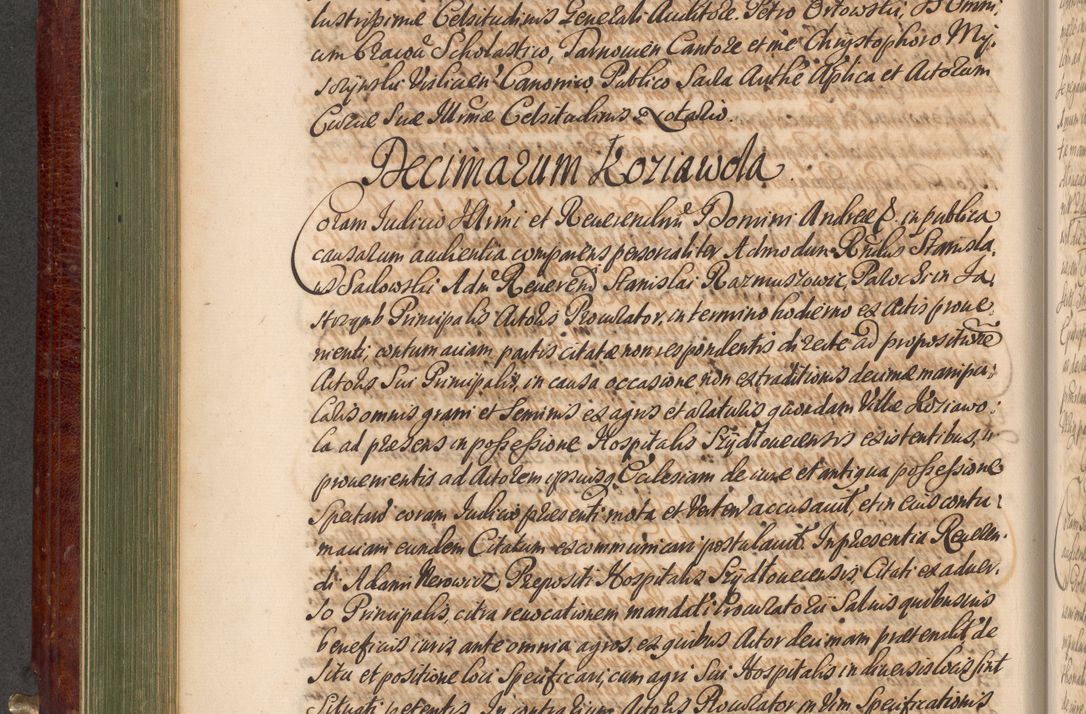 lustrissimæ Celsitudinis Generali Auditore. Petro Orłowski, SS Omni,
um Cracou Scholastico, Tarnouien Cantore et me Chrystophoro My,
szyński Visliuen Canonico Publico Sacra Authe Aplica et Actorum
Curiæ Suæ Illmæ Celsitudinis Notario.
Decimarum Koziawola.
Coram Iudicio Illmi et Reuerendmi Domini Andreæ P. in publica
causarum audientia comparens personaliter Admodum Rndus Stanisla,
us Sadowski Adm Reuerend Stanislai Razmuszowic, Parochi in Ja,
strzymb Principalis Actoris Procurator, in termino hodierno ex Actis proue,
nienti, contumaciam partis citatæ non respondentis directe ad propositionē
Actoris Sui Principalis, in causa occasione non extraditionis decimæ manipu,
laris omnis grani et Seminis ex agris et araturis quondam Villæ Koziawo,
la ad præsens in possessione Hospitalis Szydłouecensis existentibus,
prouenientis ad Actorem ipsiusq Ecclesiam de iure et antiqua possessione
Spectari coram Iudicio præsenti mota et Verten accusauit, et in eius contu,
maciam eundem Citatum excommunicari postulauit. In præsentia Reueren,
di Adami Nerowicz, Præpositi Hospitalis Szydłouecensis, Citati ex aduer,
so Principalis, citra reuocationem mandati Procuratorii Saluis quibusuis
beneficiis iuris ante omnia agros, ex quibus Actor decimam prætendit de
Situ et positione loci Specificari, cum agri Sui Hospitalis in diuersis locis sint
Situati petentis. In contrarium Actoris Procurator in Vim Specificationis